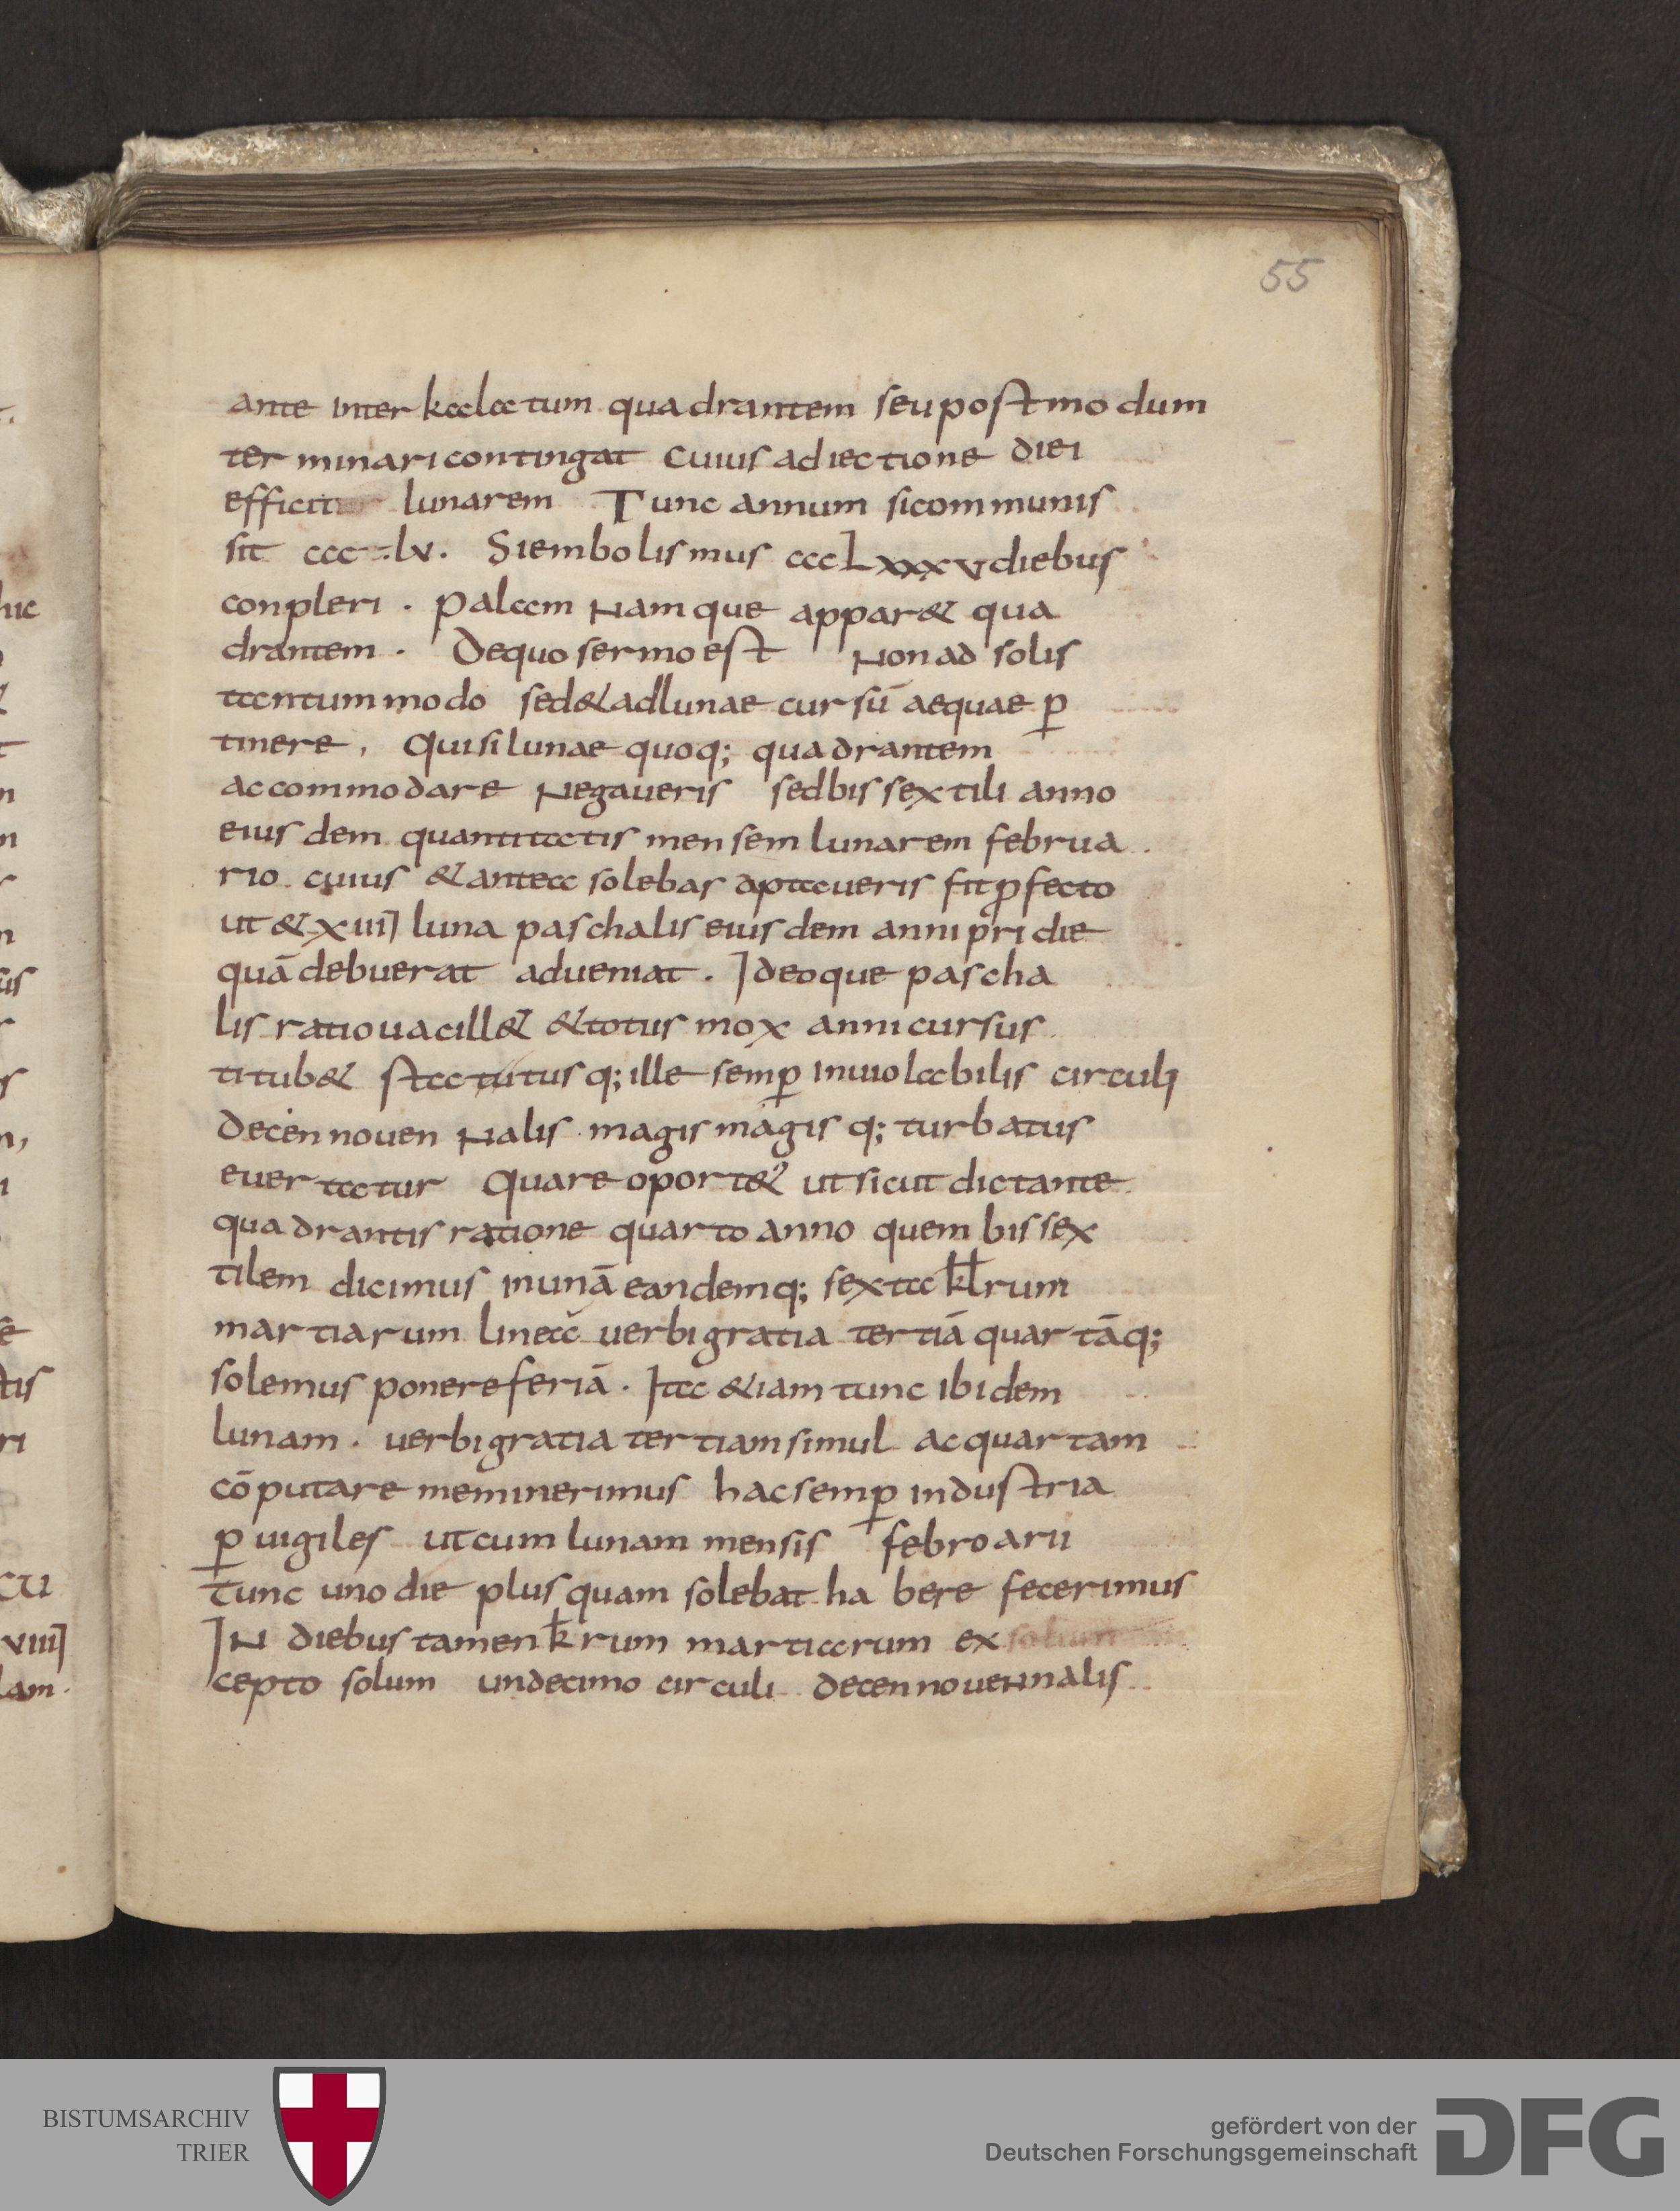 55
ante inter kalatum quadrantem seu postmodum
terminari contingat cuius adiectione diei
efficitur lunarem Tunc annum si communis
sit ccc lv. Si embolismus ccclxxxv diebus
conpleri . palam Namque appar& qua
drantem . De quo sermo est Non ad solis
tantummodo sed & ad lunae cursū aequae ꝑ
tinere, Qui si lunae quoq; quadrantem
accommodare Negaueris sed bissextili anno
eiusdem quantitatis mensem lunarem februa
rio cuius & antea solebas aptaueris fit ꝓfecto
ut & xiiij luna paschalis eiusdem anni pridie
quā debuerat adueniat . Ideoque pascha
lis ratio uacill& & totus mox anni cursus
titub& statutusq; ille semꝑ inuiolabilis circuli
decennouenNalis magis magisq; turbatus
euertatur Quare oport& ut sicut dictante
quadrantis ratione quarto anno quem bissex
tilem dicimus in unā eandemq; sexta klrum
martiarum linea uerbi gratia tertiā quartāq;
solemus ponere feriā . Ita &iam tunc ibidem
lunam . uerbi gratia tertiam simul ac quartam
cōputare meminerimus hac semꝑ industria
ꝑuigiles ut cum lunam mensis febroarii
tunc uno die plus quam solebat habere fecerimus
IN diebus tamen krum martiarum ex
cepto solum undecimo circuli decennouenNnalis
hic
viiij
lam.
BISTUMSARCHIV
TRIER
gefördert von der
Deutschen Forschungsgemeinschaft
DFG